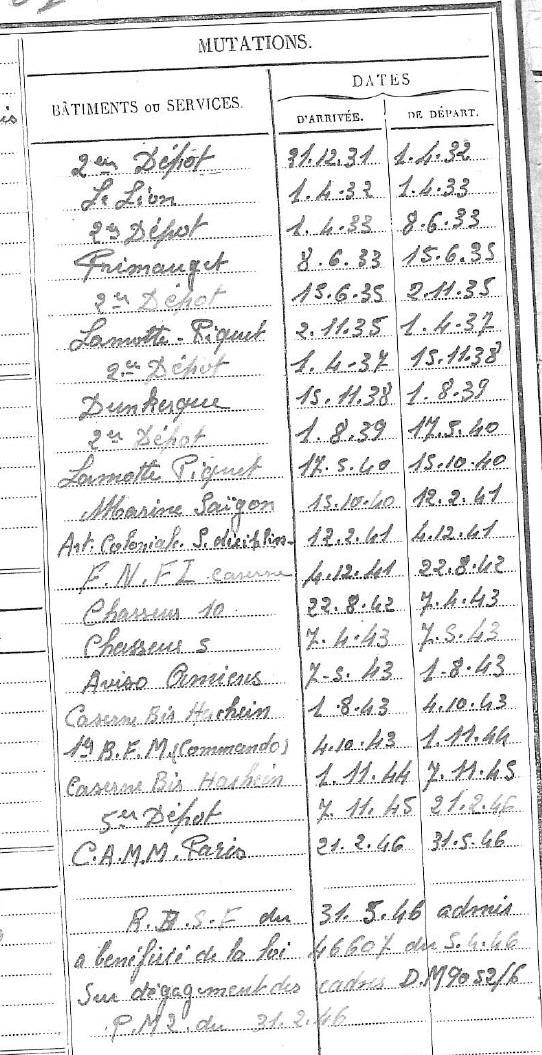 MUTATIONS.
DATES
BÂTIMENTS OU SERVICES. D'ARRIVÉE. DE DÉPART.
2em Dépôt 21.12.31 1.4.32
Le Lion 1.4.32 1.4.33
2em Dépôt 1.4.33 8.6.33
Primauget 8.6.33 15.6.35
2em Dépôt 15.6.35 2.11.35
Lamotte-Piquet 2.11.35 1.4.37
2em Dépôt 1.4.37 15.11.38
Dunkerque 15.11.38 1.8.39
2em Dépôt 1.8.39 17.5.40
Lamotte Piquet 17.5.40 15.10.40
Marine Saïgon 15.10.40 12.2.41
Art. Coloniale S. disciplin. 12.2.41 4.12.41
F.N.F.I caserne 4.12.41 22.8.42
Chasseur 10 22.8.42 7.4.43
Chasseur 5 7.4.43 7.5.43
Aviso Amiens 7.5.43 1.8.43
Caserne Bir Hacheim 1.8.43 4.10.43
1er B.F.M. (Commando) 4.10.43 1.11.44
Caserne Bir Hacheim 1.11.44 7.11.45
5em Dépôt 7.11.45 21.2.46
C.A.M.M. Paris 21.2.46 31.5.46
R.D.S.F du 31.5.46 admis
a bénéficié de la loi 46607 du 5.4.46
Sur dégagement des cadres D.M 9052/6
P.M2. du 31.2.46